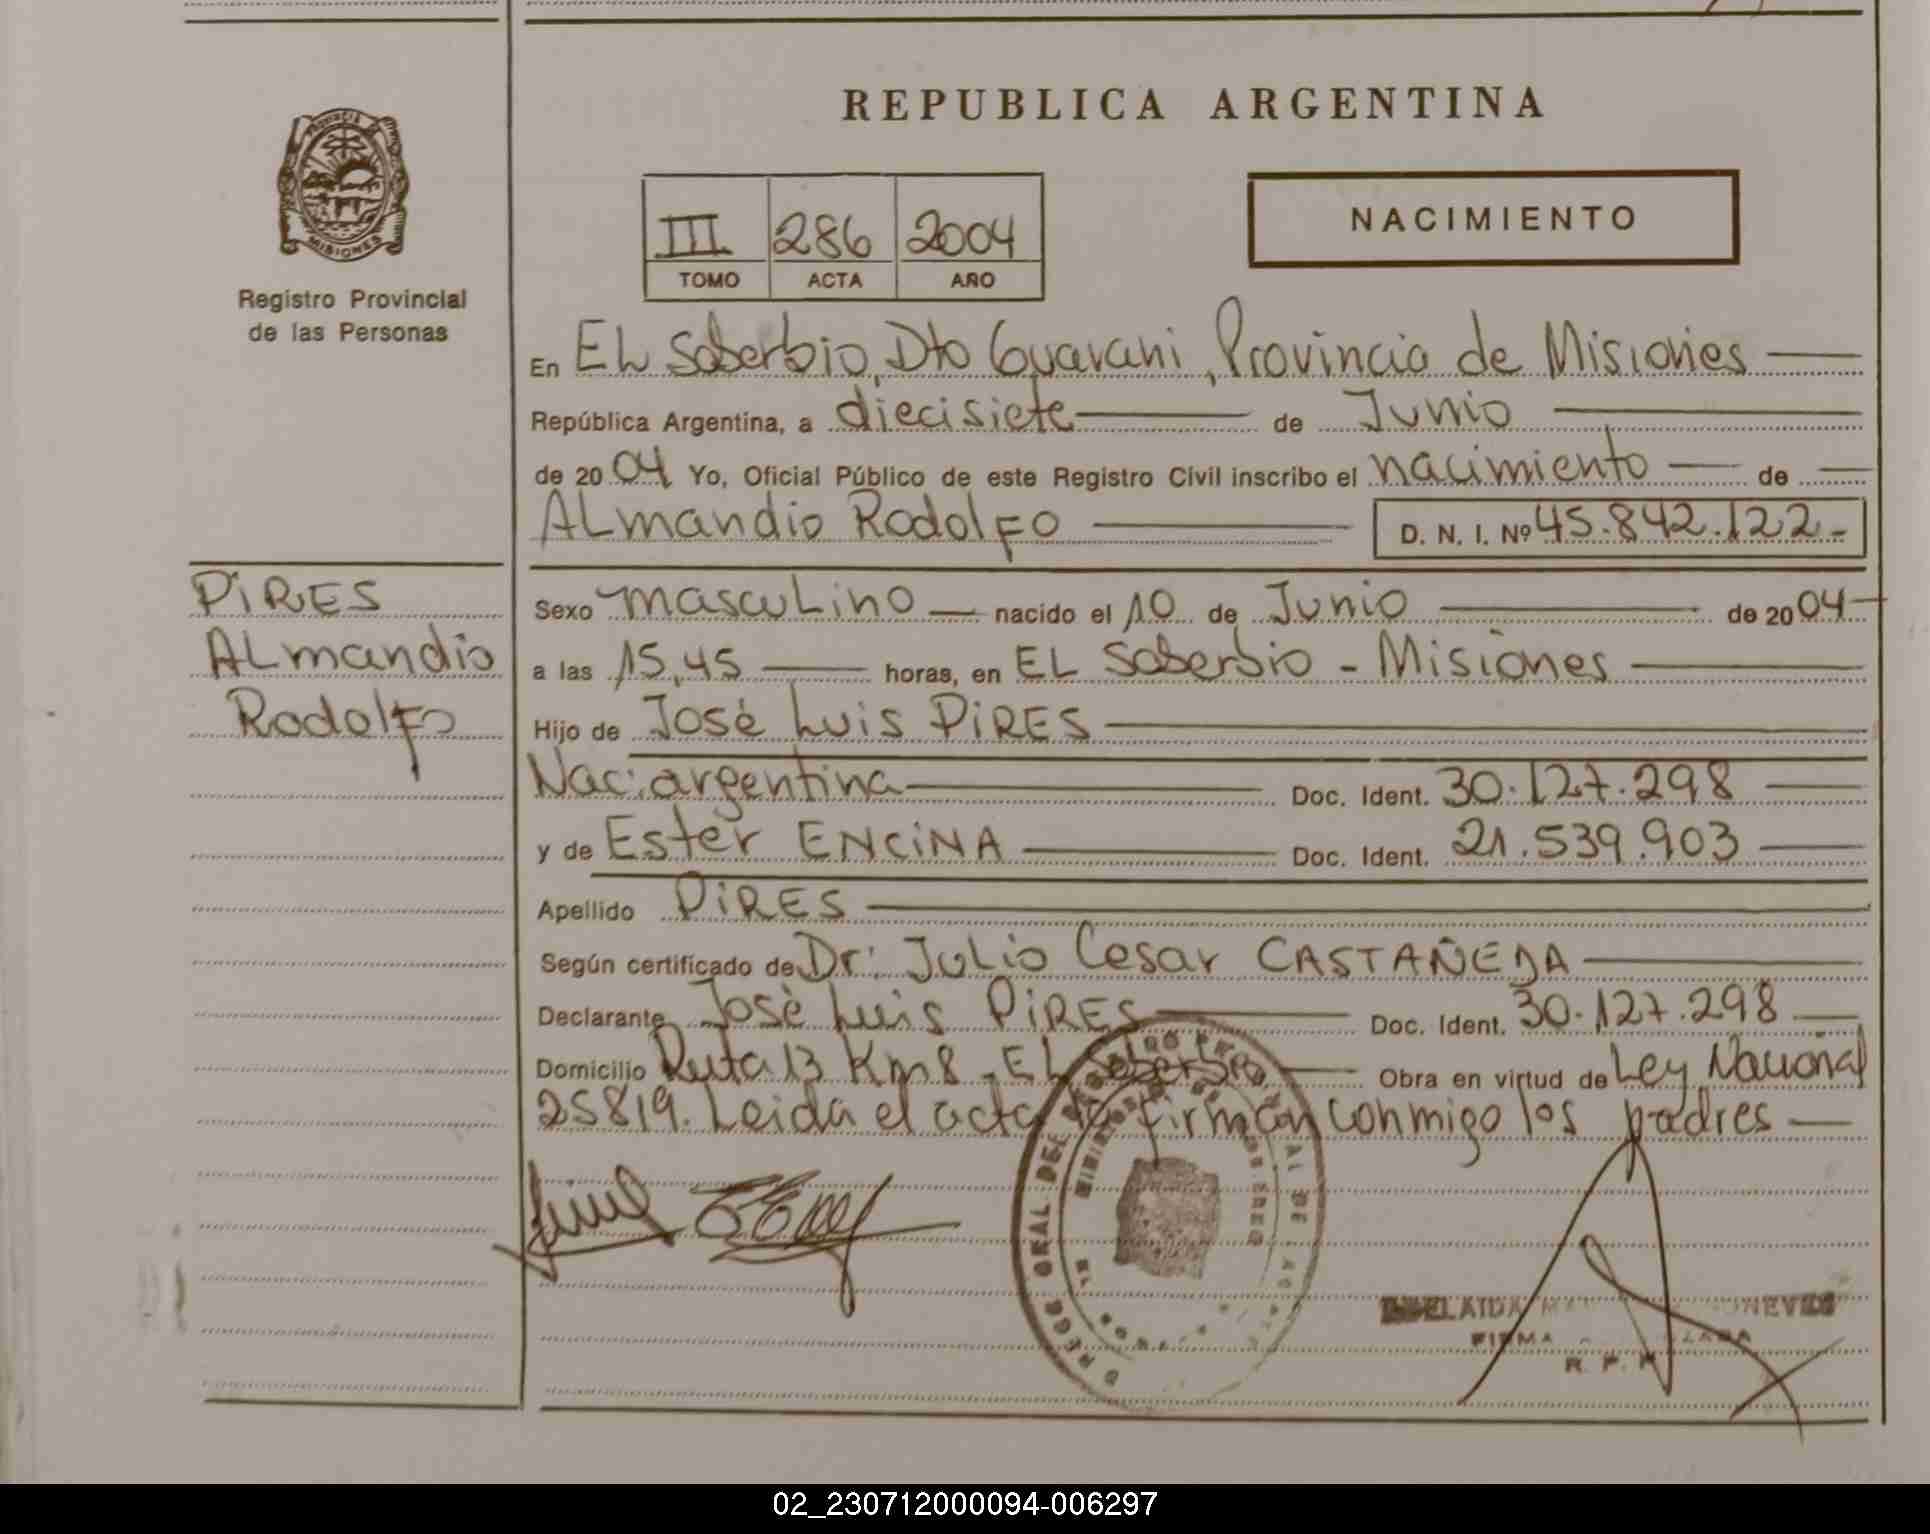 REPUBLICA ARGENTINA
PROVINCIA DE
MISIONES
Registro Provincial
de las Personas
III 286 2004
TOMO ACTA AÑO
NACIMIENTO
En EL Soberbio, Dto Guarani, Provincia de Misiones
República Argentina, a diecisiete de Junio
de 2004 Yo, Oficial Público de este Registro Civil inscribo el nacimiento de
ALmandio Rodolfo D. N. I. Nº 45.842.122-
PiRES
ALmandio
Rodolfo
Sexo masculino nacido el 10 de Junio de 2004
a las 15,45 horas, en EL Soberbio - Misiones
Hijo de José Luis PiRES
Nac: argentina Doc. Ident. 30.127.298
y de Ester ENCiNA Doc. Ident. 21.539.903
Apellido PiRES
Según certificado de Dr: Julio Cesar CASTAÑEDA
Declarante José Luis PiRES Doc. Ident. 30.127.298
Domicilio Ruta 13 Km 8 - EL Soberbio Obra en virtud de Ley Nacional
25819. Leida el acta la firman conmigo los padres
R. P. P.
02_230712000094-006297